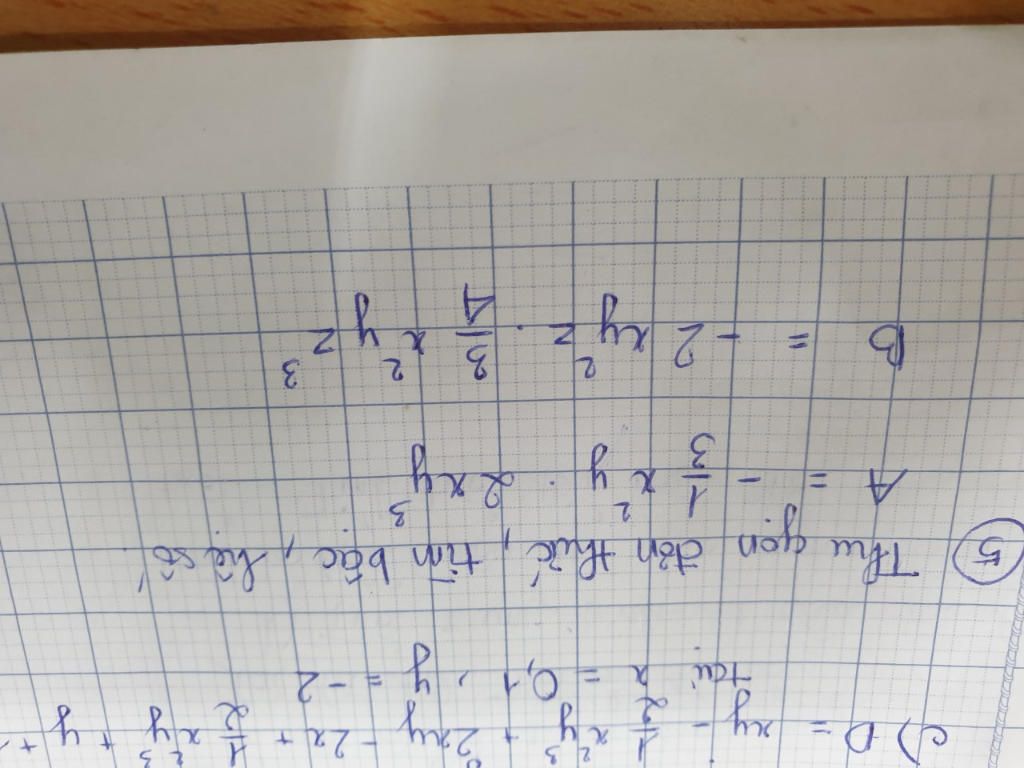 c) D = xy - 1/2 x²y³ + 2xy - 2x + 1/2 x²y³ + y +
tại x = 0,1 , y = -2
⑤ Thu gọn đơn thức, tìm bậc, hệ số.
A = - 1/3 x²y . 2xy³
B = - 2xy²z . 3/4 x²yz³